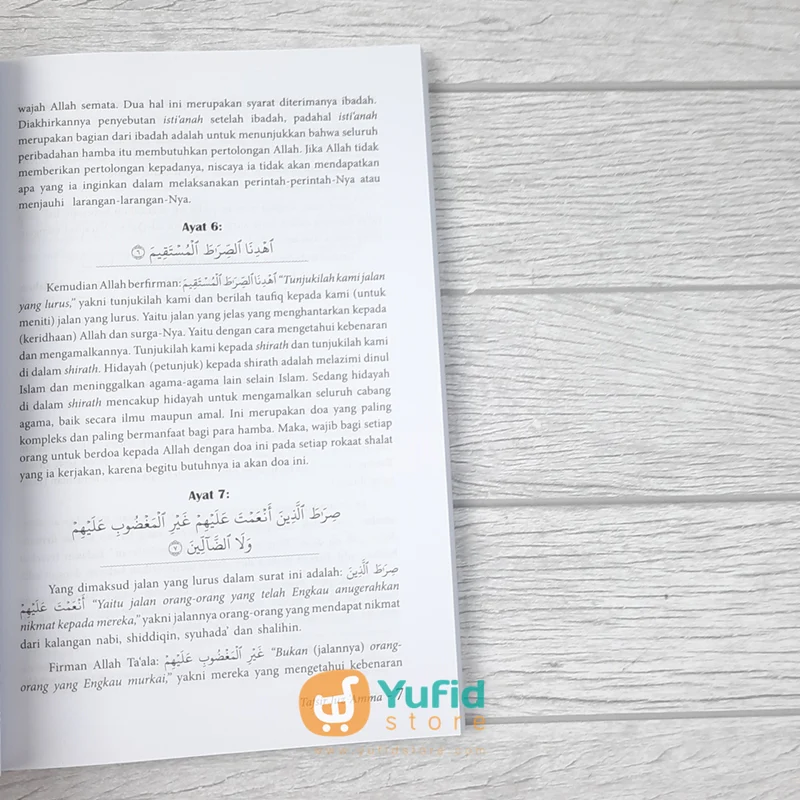 wajah Allah semata. Dua hal ini merupakan syarat diterimanya ibadah.
Diakhirkannya penyebutan isti'anah setelah ibadah, padahal isti'anah
merupakan bagian dari ibadah adalah untuk menunjukkan bahwa seluruh
peribadahan hamba itu membutuhkan pertolongan Allah. Jika Allah tidak
memberikan pertolongan kepadanya, niscaya ia tidak akan mendapatkan
apa yang ia inginkan dalam melaksanakan perintah-perintah-Nya atau
menjauhi larangan-larangan-Nya.
Ayat 6:
ٱهْدِنَا ٱلصِّرَٰطَ ٱلْمُسْتَقِيمَ ٦
Kemudian Allah berfirman: ٱهْدِنَا ٱلصِّرَٰطَ ٱلْمُسْتَقِيمَ "Tunjukilah kami jalan
yang lurus," yakni tunjukilah kami dan berilah taufiq kepada kami (untuk
meniti) jalan yang lurus. Yaitu jalan yang jelas yang menghantarkan kepada
(keridhaan) Allah dan surga-Nya. Yaitu dengan cara mengetahui kebenaran
dan mengamalkannya. Tunjukilah kami kepada shirath dan tunjukilah kami
di dalam shirath. Hidayah (petunjuk) kepada shirath adalah melazimi dinul
Islam dan meninggalkan agama-agama lain selain Islam. Sedang hidayah
di dalam shirath mencakup hidayah untuk mengamalkan seluruh cabang
agama, baik secara ilmu maupun amal. Ini merupakan doa yang paling
kompleks dan paling bermanfaat bagi para hamba. Maka, wajib bagi setiap
orang untuk berdoa kepada Allah dengan doa ini pada setiap rokaat shalat
yang ia kerjakan, karena begitu butuhnya ia akan doa ini.
Ayat 7:
صِرَٰطَ ٱلَّذِينَ أَنْعَمْتَ عَلَيْهِمْ غَيْرِ ٱلْمَغْضُوبِ عَلَيْهِمْ
وَلَا ٱلضَّآلِّينَ ٧
Yang dimaksud jalan yang lurus dalam surat ini adalah: صِرَٰطَ ٱلَّذِينَ
أَنْعَمْتَ عَلَيْهِمْ "Yaitu jalan orang-orang yang telah Engkau anugerahkan
nikmat kepada mereka," yakni jalannya orang-orang yang mendapat nikmat
dari kalangan nabi, shiddiqin, syuhada' dan shalihin.
Firman Allah Ta'ala: غَيْرِ ٱلْمَغْضُوبِ عَلَيْهِمْ "Bukan (jalannya) orang-
orang yang Engkau murkai," yakni mereka yang mengetahui kebenaran
Tafsir Juz 'Amma 7
Yufid
store
www.yufidstore.com